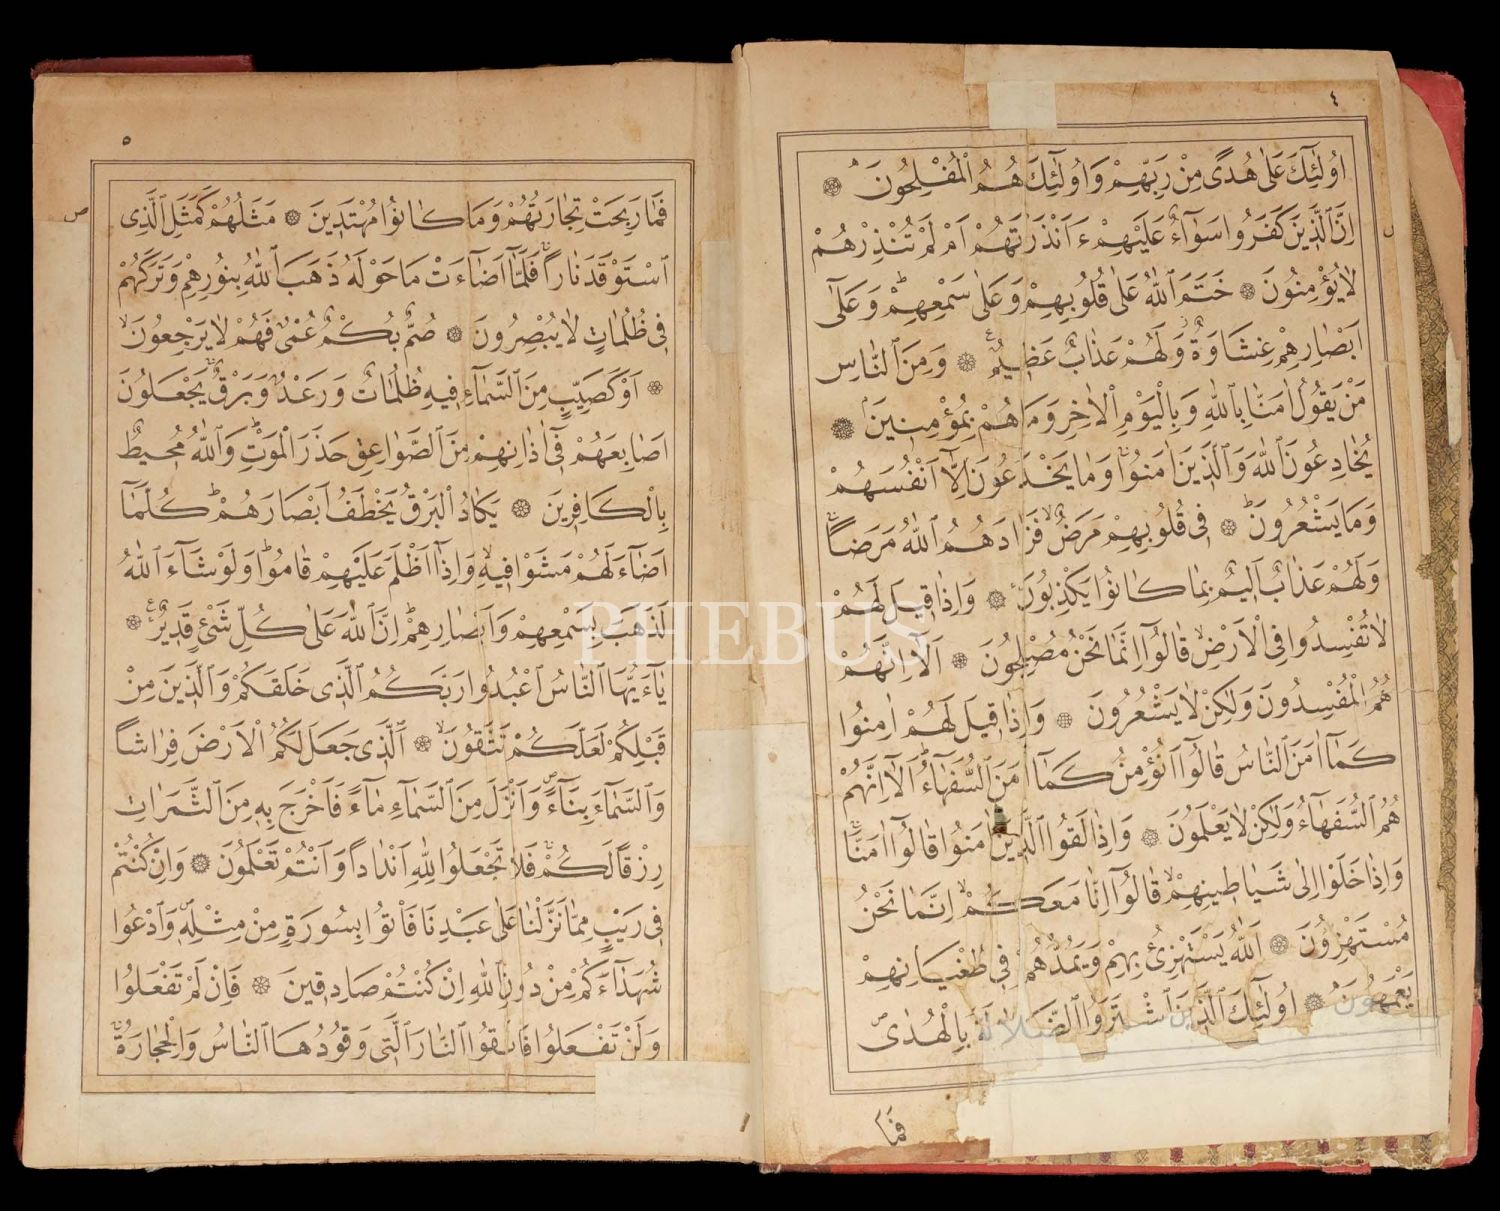 ٤
اُولٰٓئِكَ عَلٰى هُدًى مِنْ رَبِّهِمْ وَاُولٰٓئِكَ هُمُ الْمُفْلِحُونَ
اِنَّ الَّذِينَ كَفَرُوا سَوَآءٌ عَلَيْهِمْ ءَاَنْذَرْتَهُمْ اَمْ لَمْ تُنْذِرْهُمْ
لَا يُؤْمِنُونَ خَتَمَ اللّٰهُ عَلٰى قُلُوبِهِمْ وَعَلٰى سَمْعِهِمْ وَعَلٰٓى
اَبْصَارِهِمْ غِشَاوَةٌ وَلَهُمْ عَذَابٌ عَظِيمٌ وَمِنَ النَّاسِ
مَنْ يَقُولُ اٰمَنَّا بِاللّٰهِ وَبِالْيَوْمِ الْاٰخِرِ وَمَا هُمْ بِمُؤْمِنِينَ
يُخَادِعُونَ اللّٰهَ وَالَّذِينَ اٰمَنُوا وَمَا يَخْدَعُونَ اِلَّٓا اَنْفُسَهُمْ
وَمَا يَشْعُرُونَ فِى قُلُوبِهِمْ مَرَضٌ فَزَادَهُمُ اللّٰهُ مَرَضًا
وَلَهُمْ عَذَابٌ اَلِيمٌ بِمَا كَانُوا يَكْذِبُونَ وَاِذَا قِيلَ لَهُمْ
لَا تُفْسِدُوا فِى الْاَرْضِ قَالُوٓا اِنَّمَا نَحْنُ مُصْلِحُونَ اَلَٓا اِنَّهُمْ
هُمُ الْمُفْسِدُونَ وَلٰكِنْ لَا يَشْعُرُونَ وَاِذَا قِيلَ لَهُمْ اٰمِنُوا
كَمَٓا اٰمَنَ النَّاسُ قَالُوٓا اَنُؤْمِنُ كَمَٓا اٰمَنَ السُّفَهَآءُ اَلَٓا اِنَّهُمْ
هُمُ السُّفَهَآءُ وَلٰكِنْ لَا يَعْلَمُونَ وَاِذَا لَقُوا الَّذِينَ اٰمَنُوا قَالُوٓا اٰمَنَّا
وَاِذَا خَلَوْا اِلٰى شَيَاطِينِهِمْ قَالُوٓا اِنَّا مَعَكُمْ اِنَّمَا نَحْنُ
مُسْتَهْزِؤُنَ اَللّٰهُ يَسْتَهْزِئُ بِهِمْ وَيَمُدُّهُمْ فِى طُغْيَانِهِمْ
يَعْمَهُونَ اُولٰٓئِكَ الَّذِينَ اشْتَرَوُا الضَّلَالَةَ بِالْهُدٰى
فَمَا
٥
ص
فَمَا رَبِحَتْ تِجَارَتُهُمْ وَمَا كَانُوا مُهْتَدِينَ مَثَلُهُمْ كَمَثَلِ الَّذِى
اسْتَوْقَدَ نَارًا فَلَمَّٓا اَضَٓاءَتْ مَا حَوْلَهُ ذَهَبَ اللّٰهُ بِنُورِهِمْ وَتَرَكَهُمْ
فِى ظُلُمَاتٍ لَا يُبْصِرُونَ صُمٌّ بُكْمٌ عُمْىٌ فَهُمْ لَا يَرْجِعُونَ
اَوْ كَصَيِّبٍ مِنَ السَّمَٓاءِ فِيهِ ظُلُمَاتٌ وَرَعْدٌ وَبَرْقٌ يَجْعَلُونَ
اَصَابِعَهُمْ فِٓى اٰذَانِهِمْ مِنَ الصَّوَاعِقِ حَذَرَ الْمَوْتِ وَاللّٰهُ مُحِيطٌ
بِالْكَافِرِينَ يَكَادُ الْبَرْقُ يَخْطَفُ اَبْصَارَهُمْ كُلَّمَٓا
اَضَٓاءَ لَهُمْ مَشَوْا فِيهِ وَاِذَٓا اَظْلَمَ عَلَيْهِمْ قَامُوا وَلَوْ شَٓاءَ اللّٰهُ
لَذَهَبَ بِسَمْعِهِمْ وَاَبْصَارِهِمْ اِنَّ اللّٰهَ عَلٰى كُلِّ شَىْءٍ قَدِيرٌ
يَٓا اَيُّهَا النَّاسُ اعْبُدُوا رَبَّكُمُ الَّذِى خَلَقَكُمْ وَالَّذِينَ مِنْ
قَبْلِكُمْ لَعَلَّكُمْ تَتَّقُونَ اَلَّذِى جَعَلَ لَكُمُ الْاَرْضَ فِرَاشًا
وَالسَّمَٓاءَ بِنَٓاءً وَاَنْزَلَ مِنَ السَّمَٓاءِ مَٓاءً فَاَخْرَجَ بِهِ مِنَ الثَّمَرَاتِ
رِزْقًا لَكُمْ فَلَا تَجْعَلُوا لِلّٰهِ اَنْدَادًا وَاَنْتُمْ تَعْلَمُونَ وَاِنْ كُنْتُمْ
فِى رَيْبٍ مِمَّا نَزَّلْنَا عَلٰى عَبْدِنَا فَاْتُوا بِسُورَةٍ مِنْ مِثْلِهِ وَادْعُوا
شُهَدَٓاءَكُمْ مِنْ دُونِ اللّٰهِ اِنْ كُنْتُمْ صَادِقِينَ فَاِنْ لَمْ تَفْعَلُوا
وَلَنْ تَفْعَلُوا فَاتَّقُوا النَّارَ الَّتِى وَقُودُهَا النَّاسُ وَالْحِجَارَةُ
PHEBUS